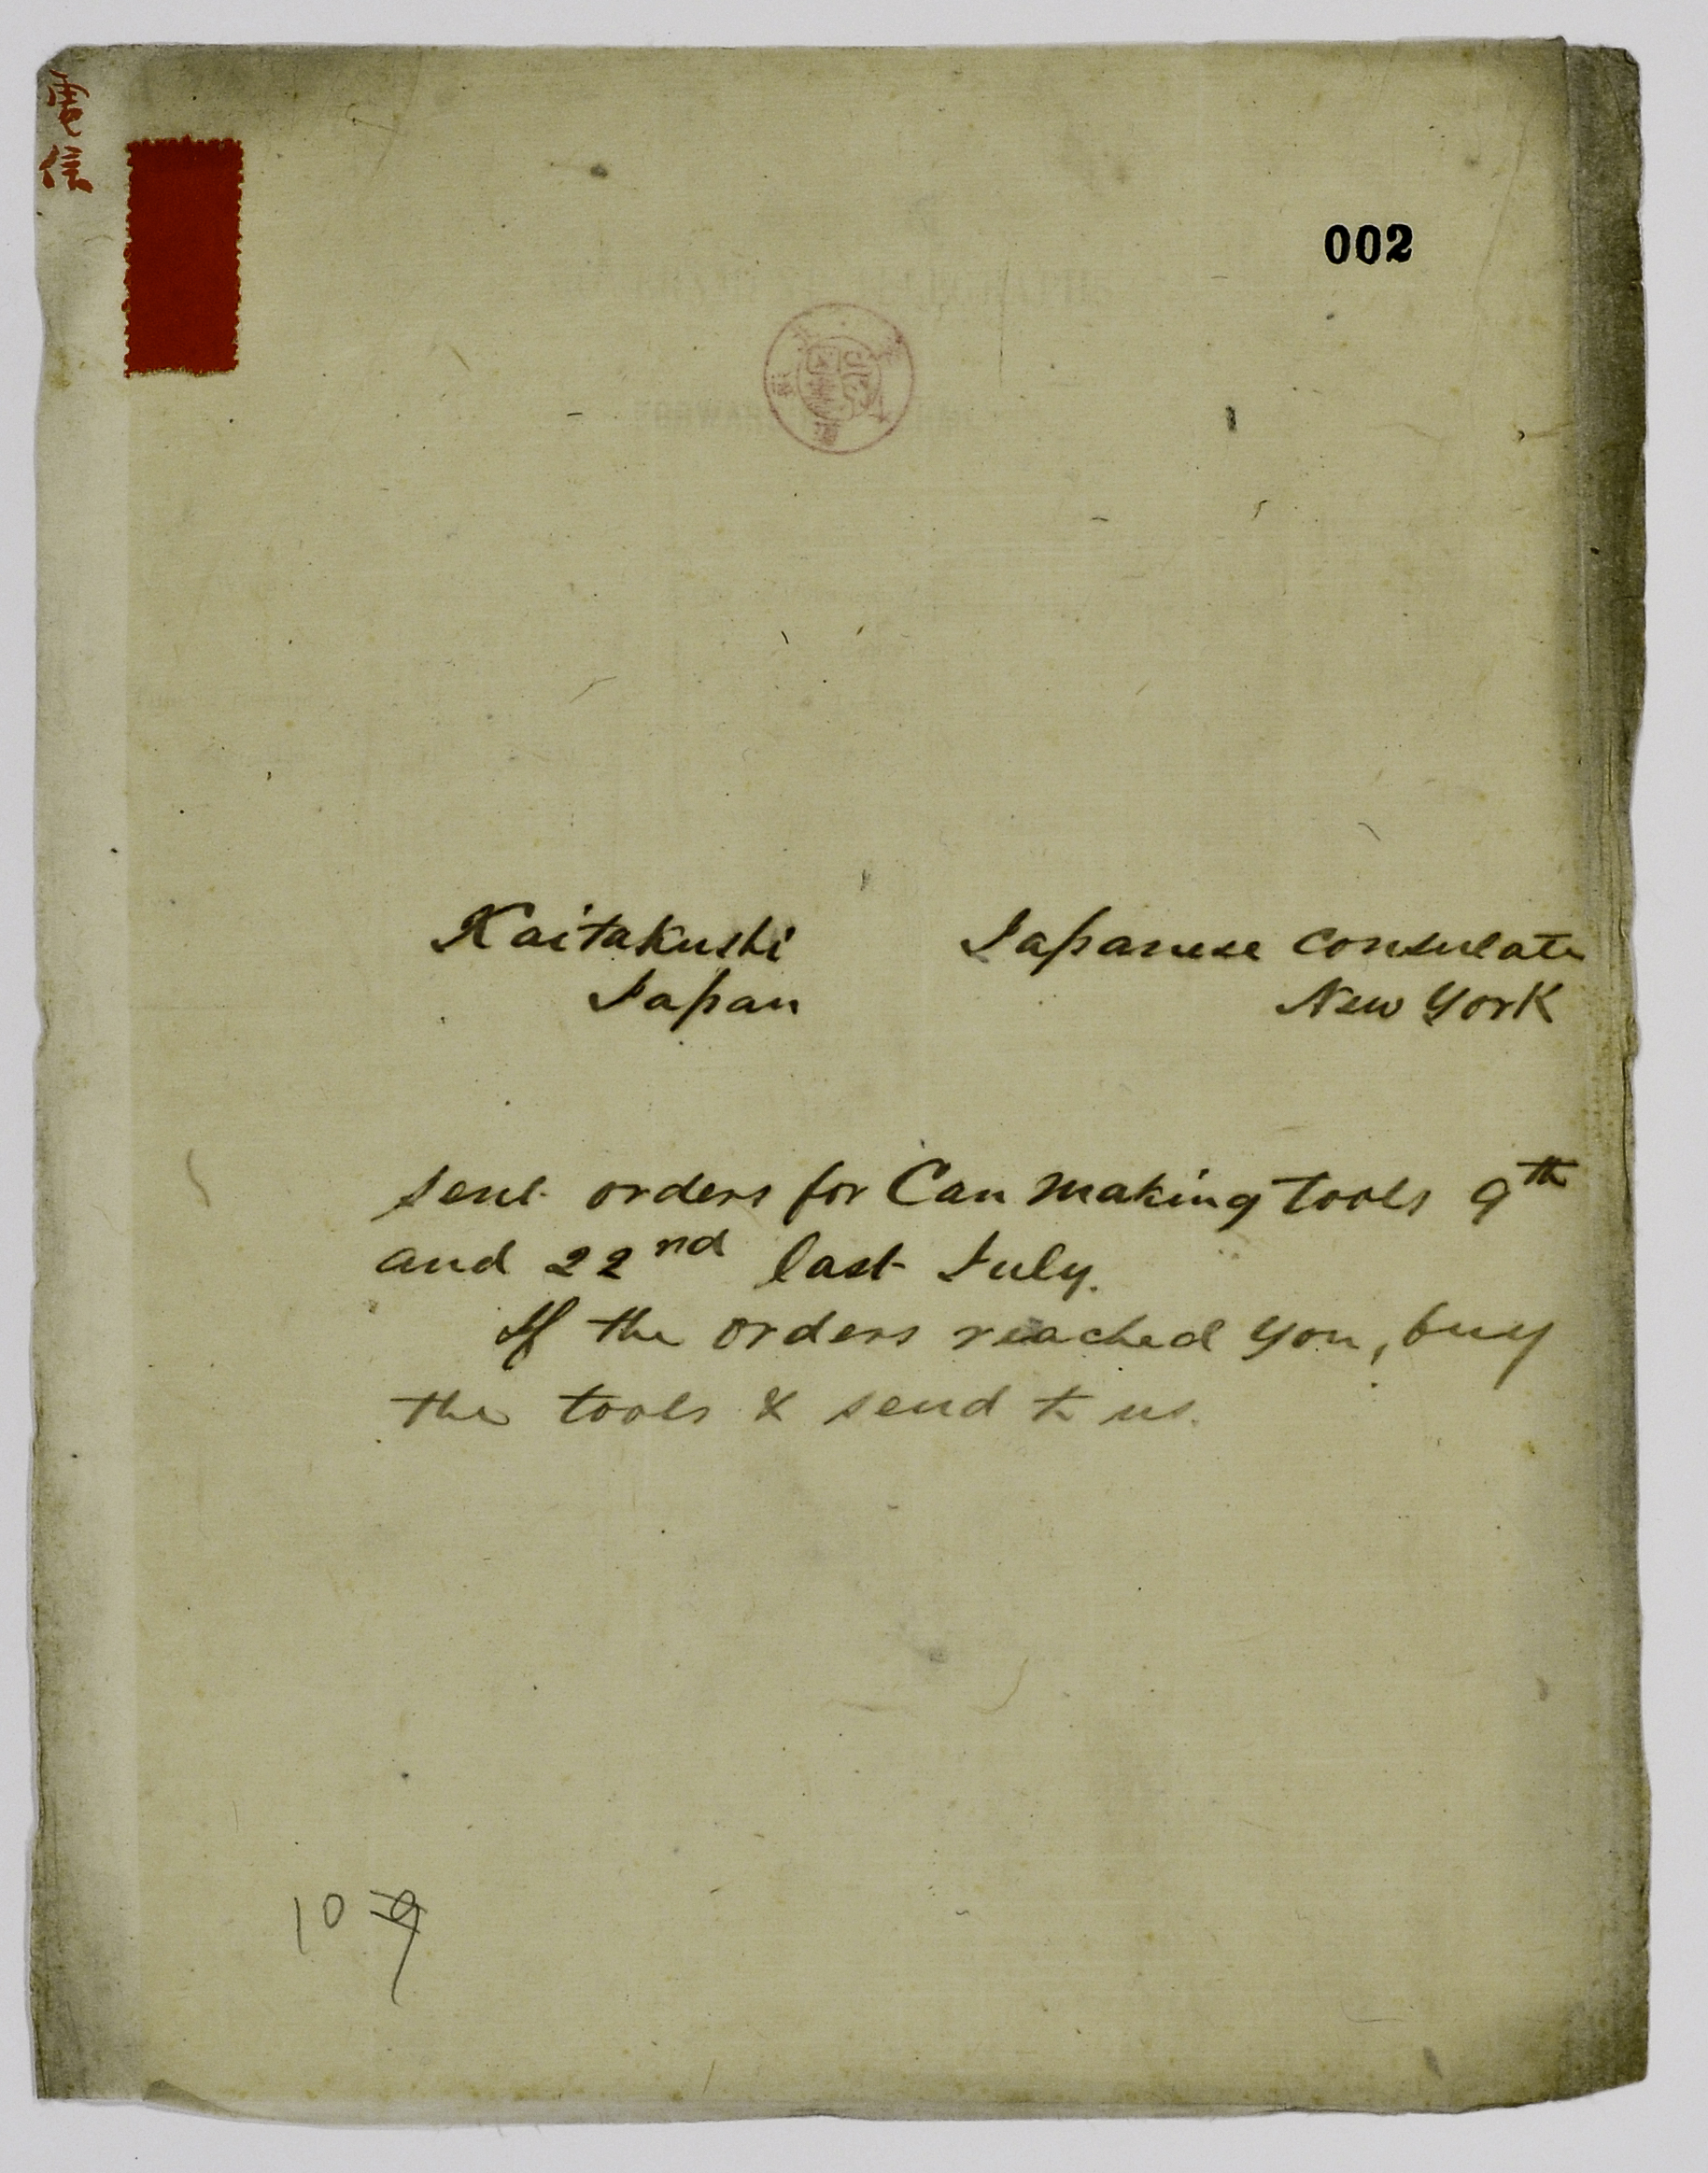 電信
002
Kaitakushi Japanese consulate
Japan New York
sent orders for Can making tools 9th
and 22nd last July.
If the orders reached you, buy
the tools & send to us.
10